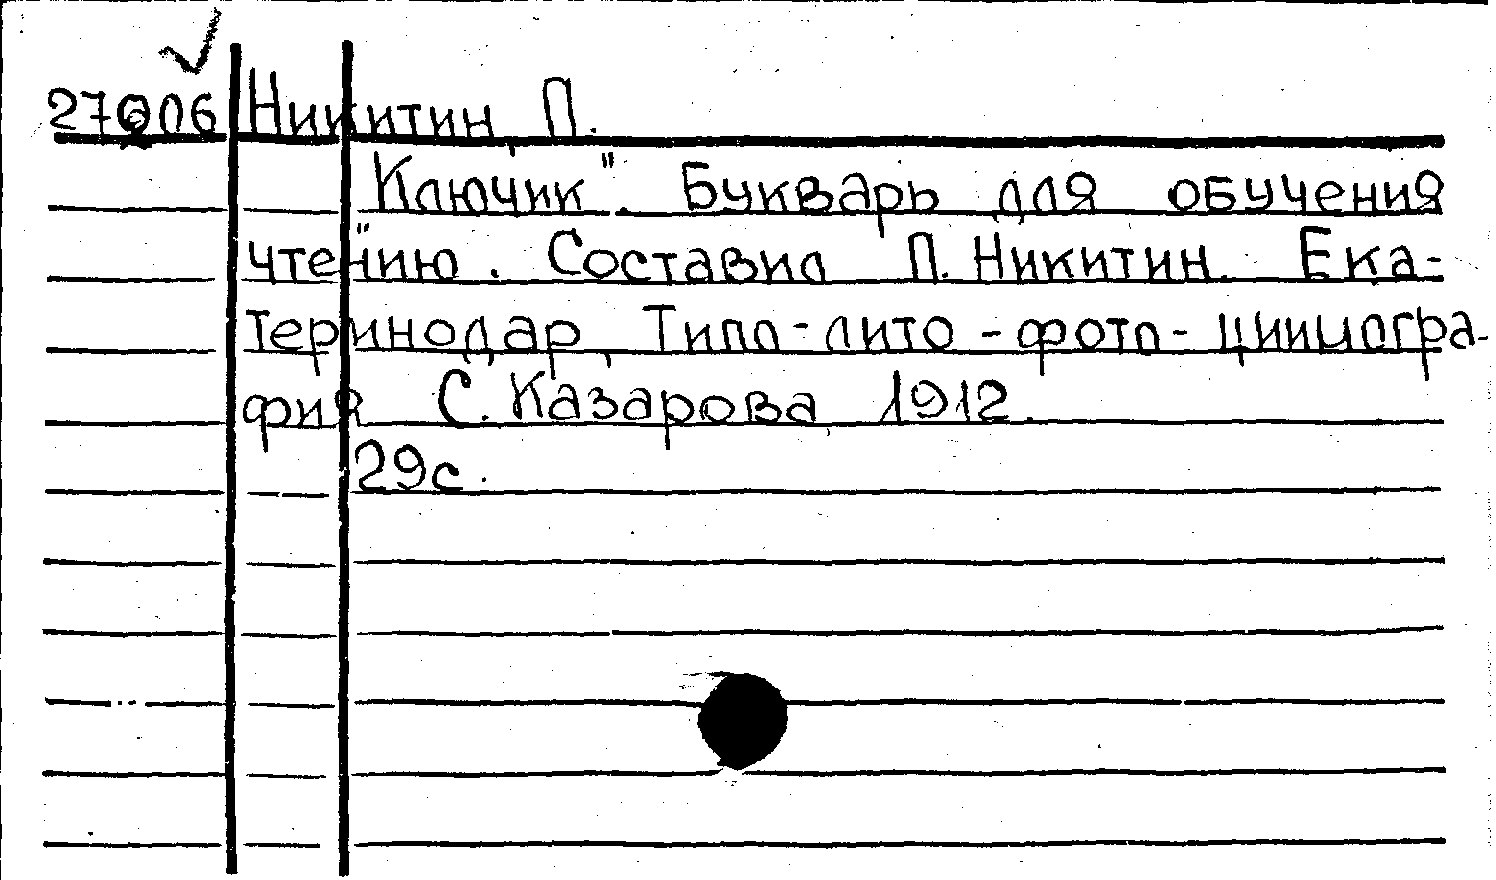 27606 Никитин, П.
"Ключик". Букварь для обучения
чтению. Составил П. Никитин. Ека-
теринодар, Типо-лито-фото-цинкогра-
фия С. Казарова, 1912.
29с.